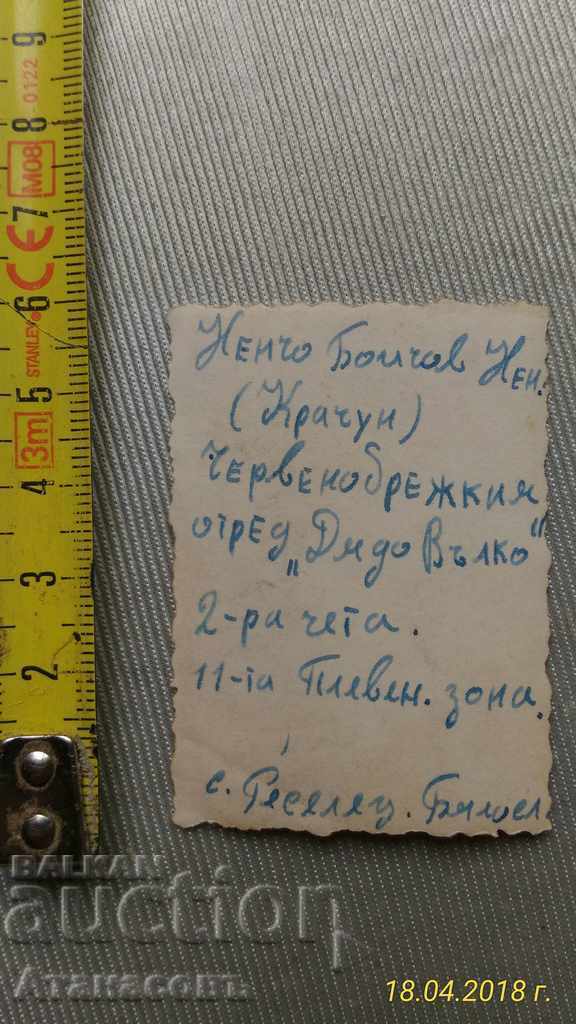 Ненчо Бончов Нен.
(Крачун)
Червенобрежкия
отред „Дядо Вълко"
2-ра чета.
11-та Плевен. зона.
с. Реселец. Бялосл.
9
8
7
6
5
4
3
2
0122
M08
CE
STANLEY
3m
BALKAN
auction
Атанасовъ
18.04.2018 г.